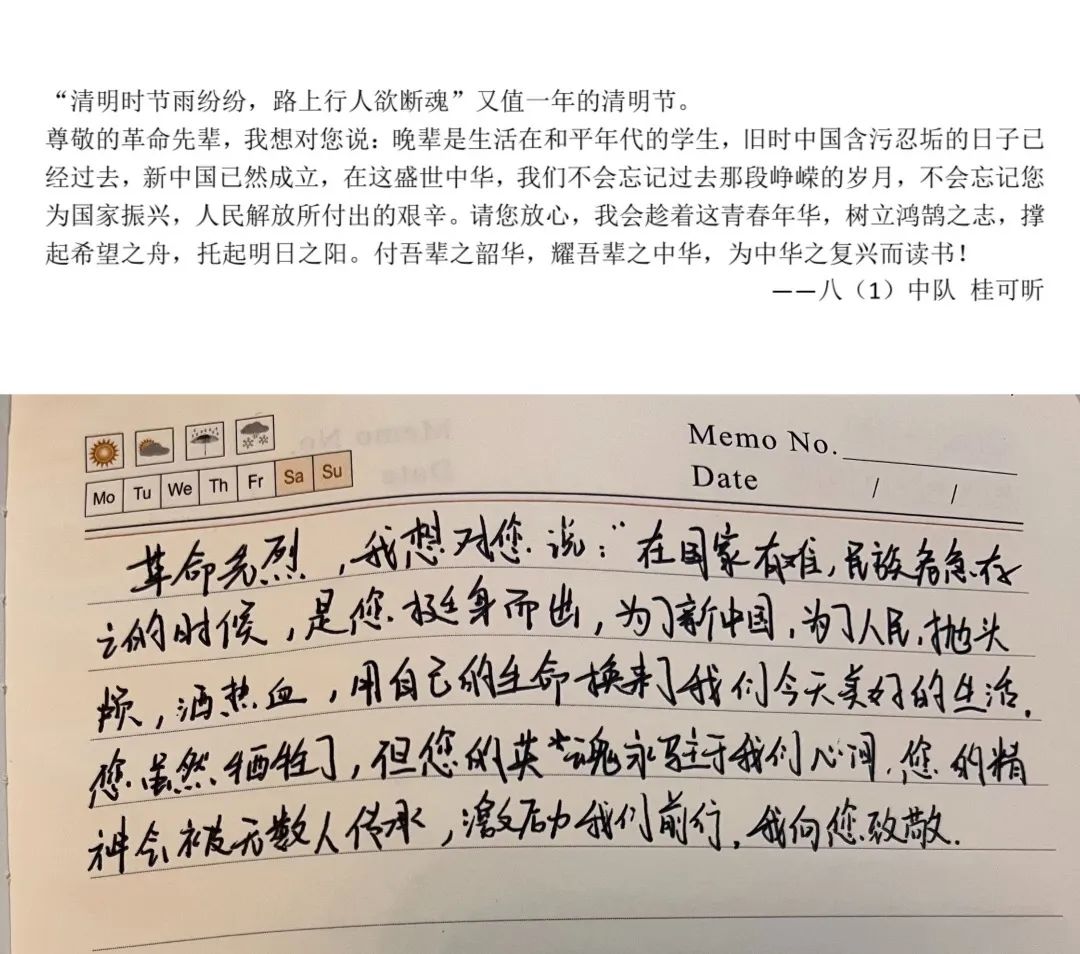 “清明时节雨纷纷，路上行人欲断魂”又值一年的清明节。
尊敬的革命先辈，我想对您说：晚辈是生活在和平年代的学生，旧时中国含污忍垢的日子已
经过去，新中国已然成立，在这盛世中华，我们不会忘记过去那段峥嵘的岁月，不会忘记您
为国家振兴，人民解放所付出的艰辛。请您放心，我会趁着这青春年华，树立鸿鹄之志，撑
起希望之舟，托起明日之阳。付吾辈之韶华，耀吾辈之中华，为中华之复兴而读书！
——八（1）中队 桂可昕
Memo No.
Mo Tu We Th Fr Sa Su
Date / /
革命先烈，我想对您说：“在国家有难，民族危急存
亡的时候，是您挺身而出，为了新中国，为了人民，抛头
颅，洒热血，用自己的生命换来了我们今天美好的生活。
您虽然牺牲了，但您的英魂永驻于我们心间，您的精
神会被无数人传承，激励我们前行，我向您致敬。